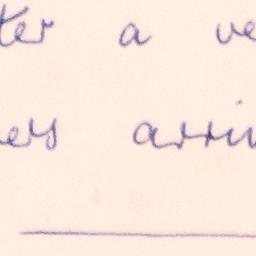 ter a ve
ers arriv